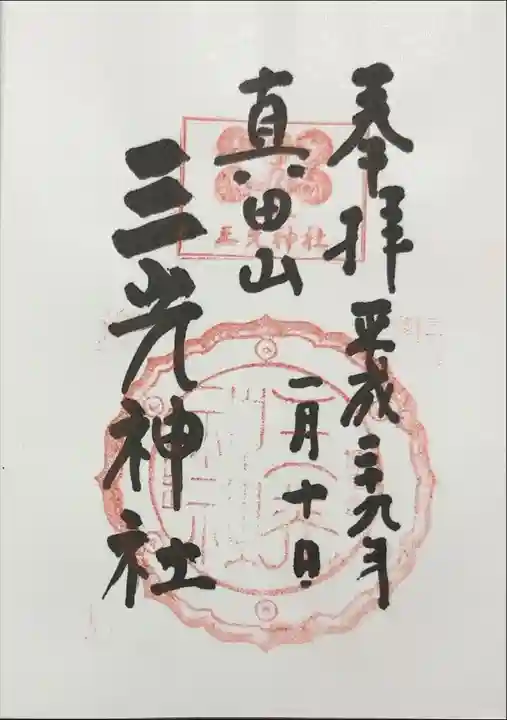 奉拝
平成二十九年
一月十日
真田山
三光神社
三光神社